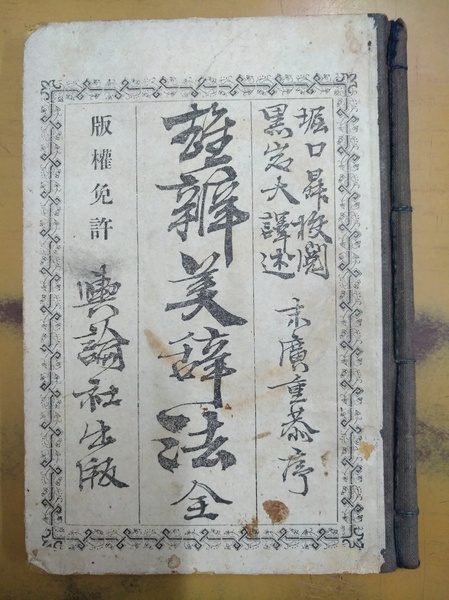 堀口昇校閲
黒岩大譯述
末廣重恭序
雄辯美辞法全
版權免許
輿論社出版